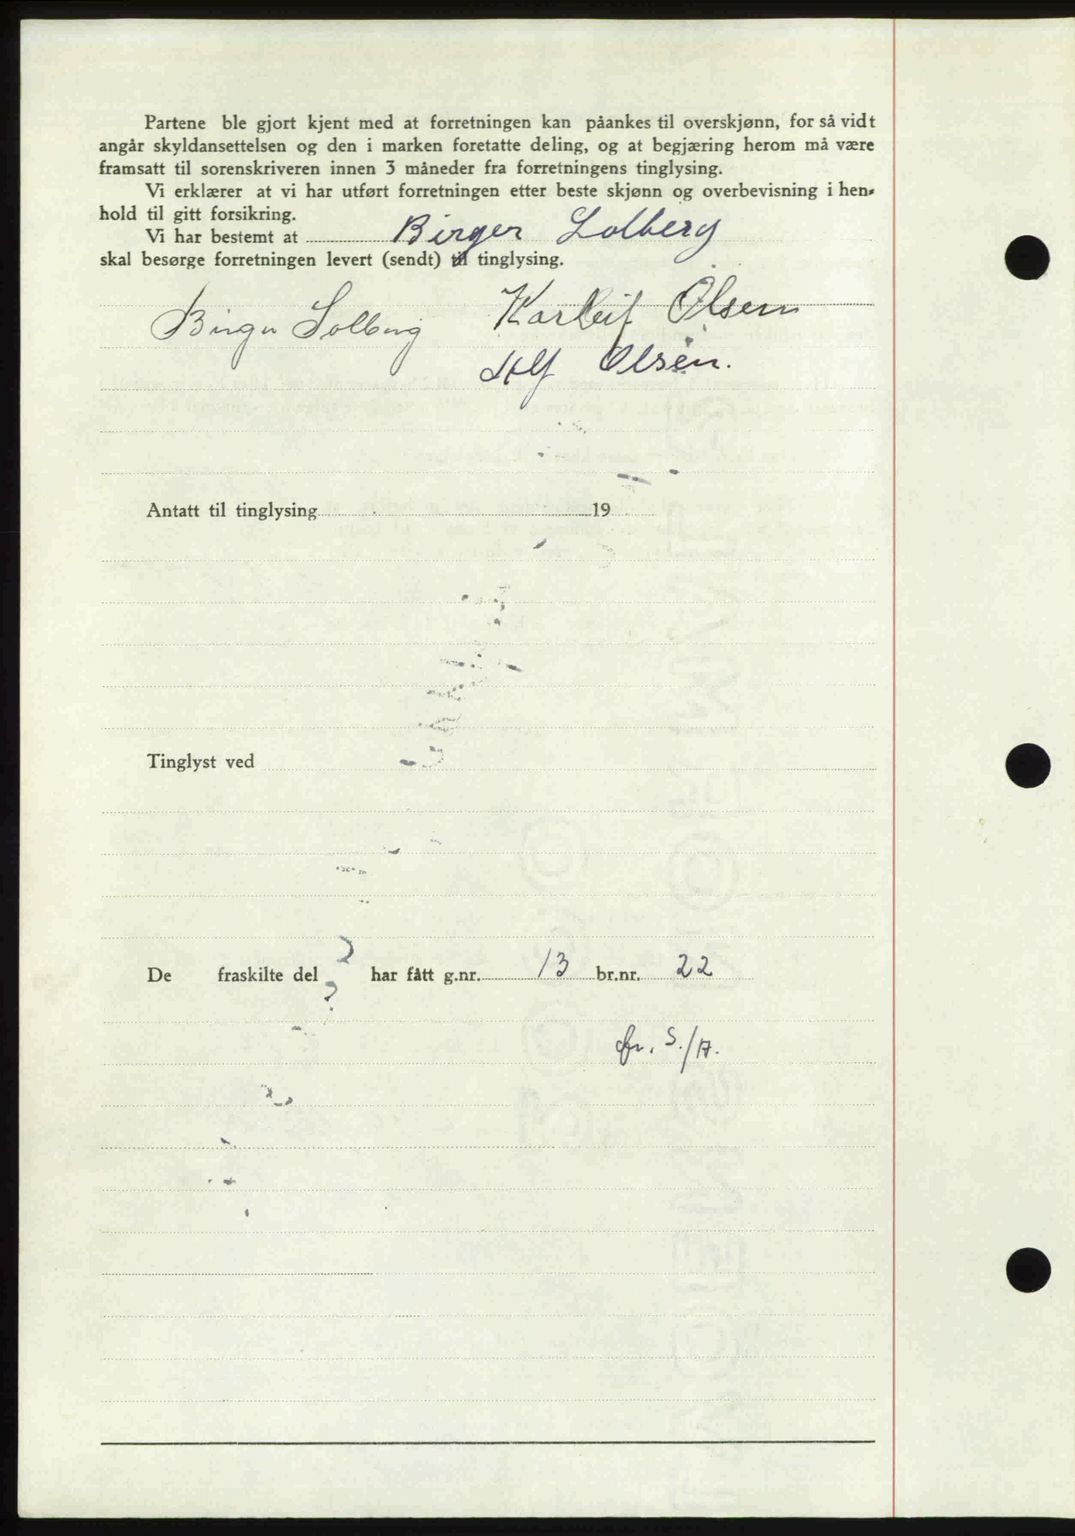 Partene ble gjort kjent med at forretningen kan påankes til overskjønn, for så vidt
angår skyldansettelsen og den i marken foretatte deling, og at begjæring herom må være
framsatt til sorenskriveren innen 3 måneder fra forretningens tinglysing.
Vi erklærer at vi har utført forretningen etter beste skjønn og overbevisning i hen-
hold til gitt forsikring.
Vi har bestemt at Birger Solberg
skal besørge forretningen levert (sendt) til tinglysing.
Birger Solberg Karleif Olsen
Olsen.
Antatt til tinglysing 19
Tinglyst ved
De fraskilte del har fått g.nr. 13 br.nr. 22